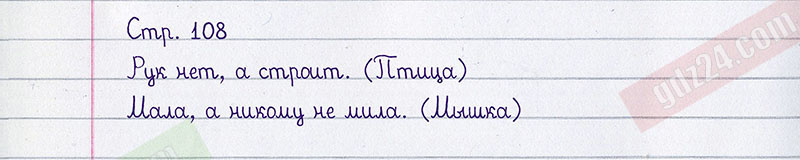 Стр. 108
Рук нет, а строит. (Птица)
Мала, а никому не мила. (Мышка)
gdz24.com